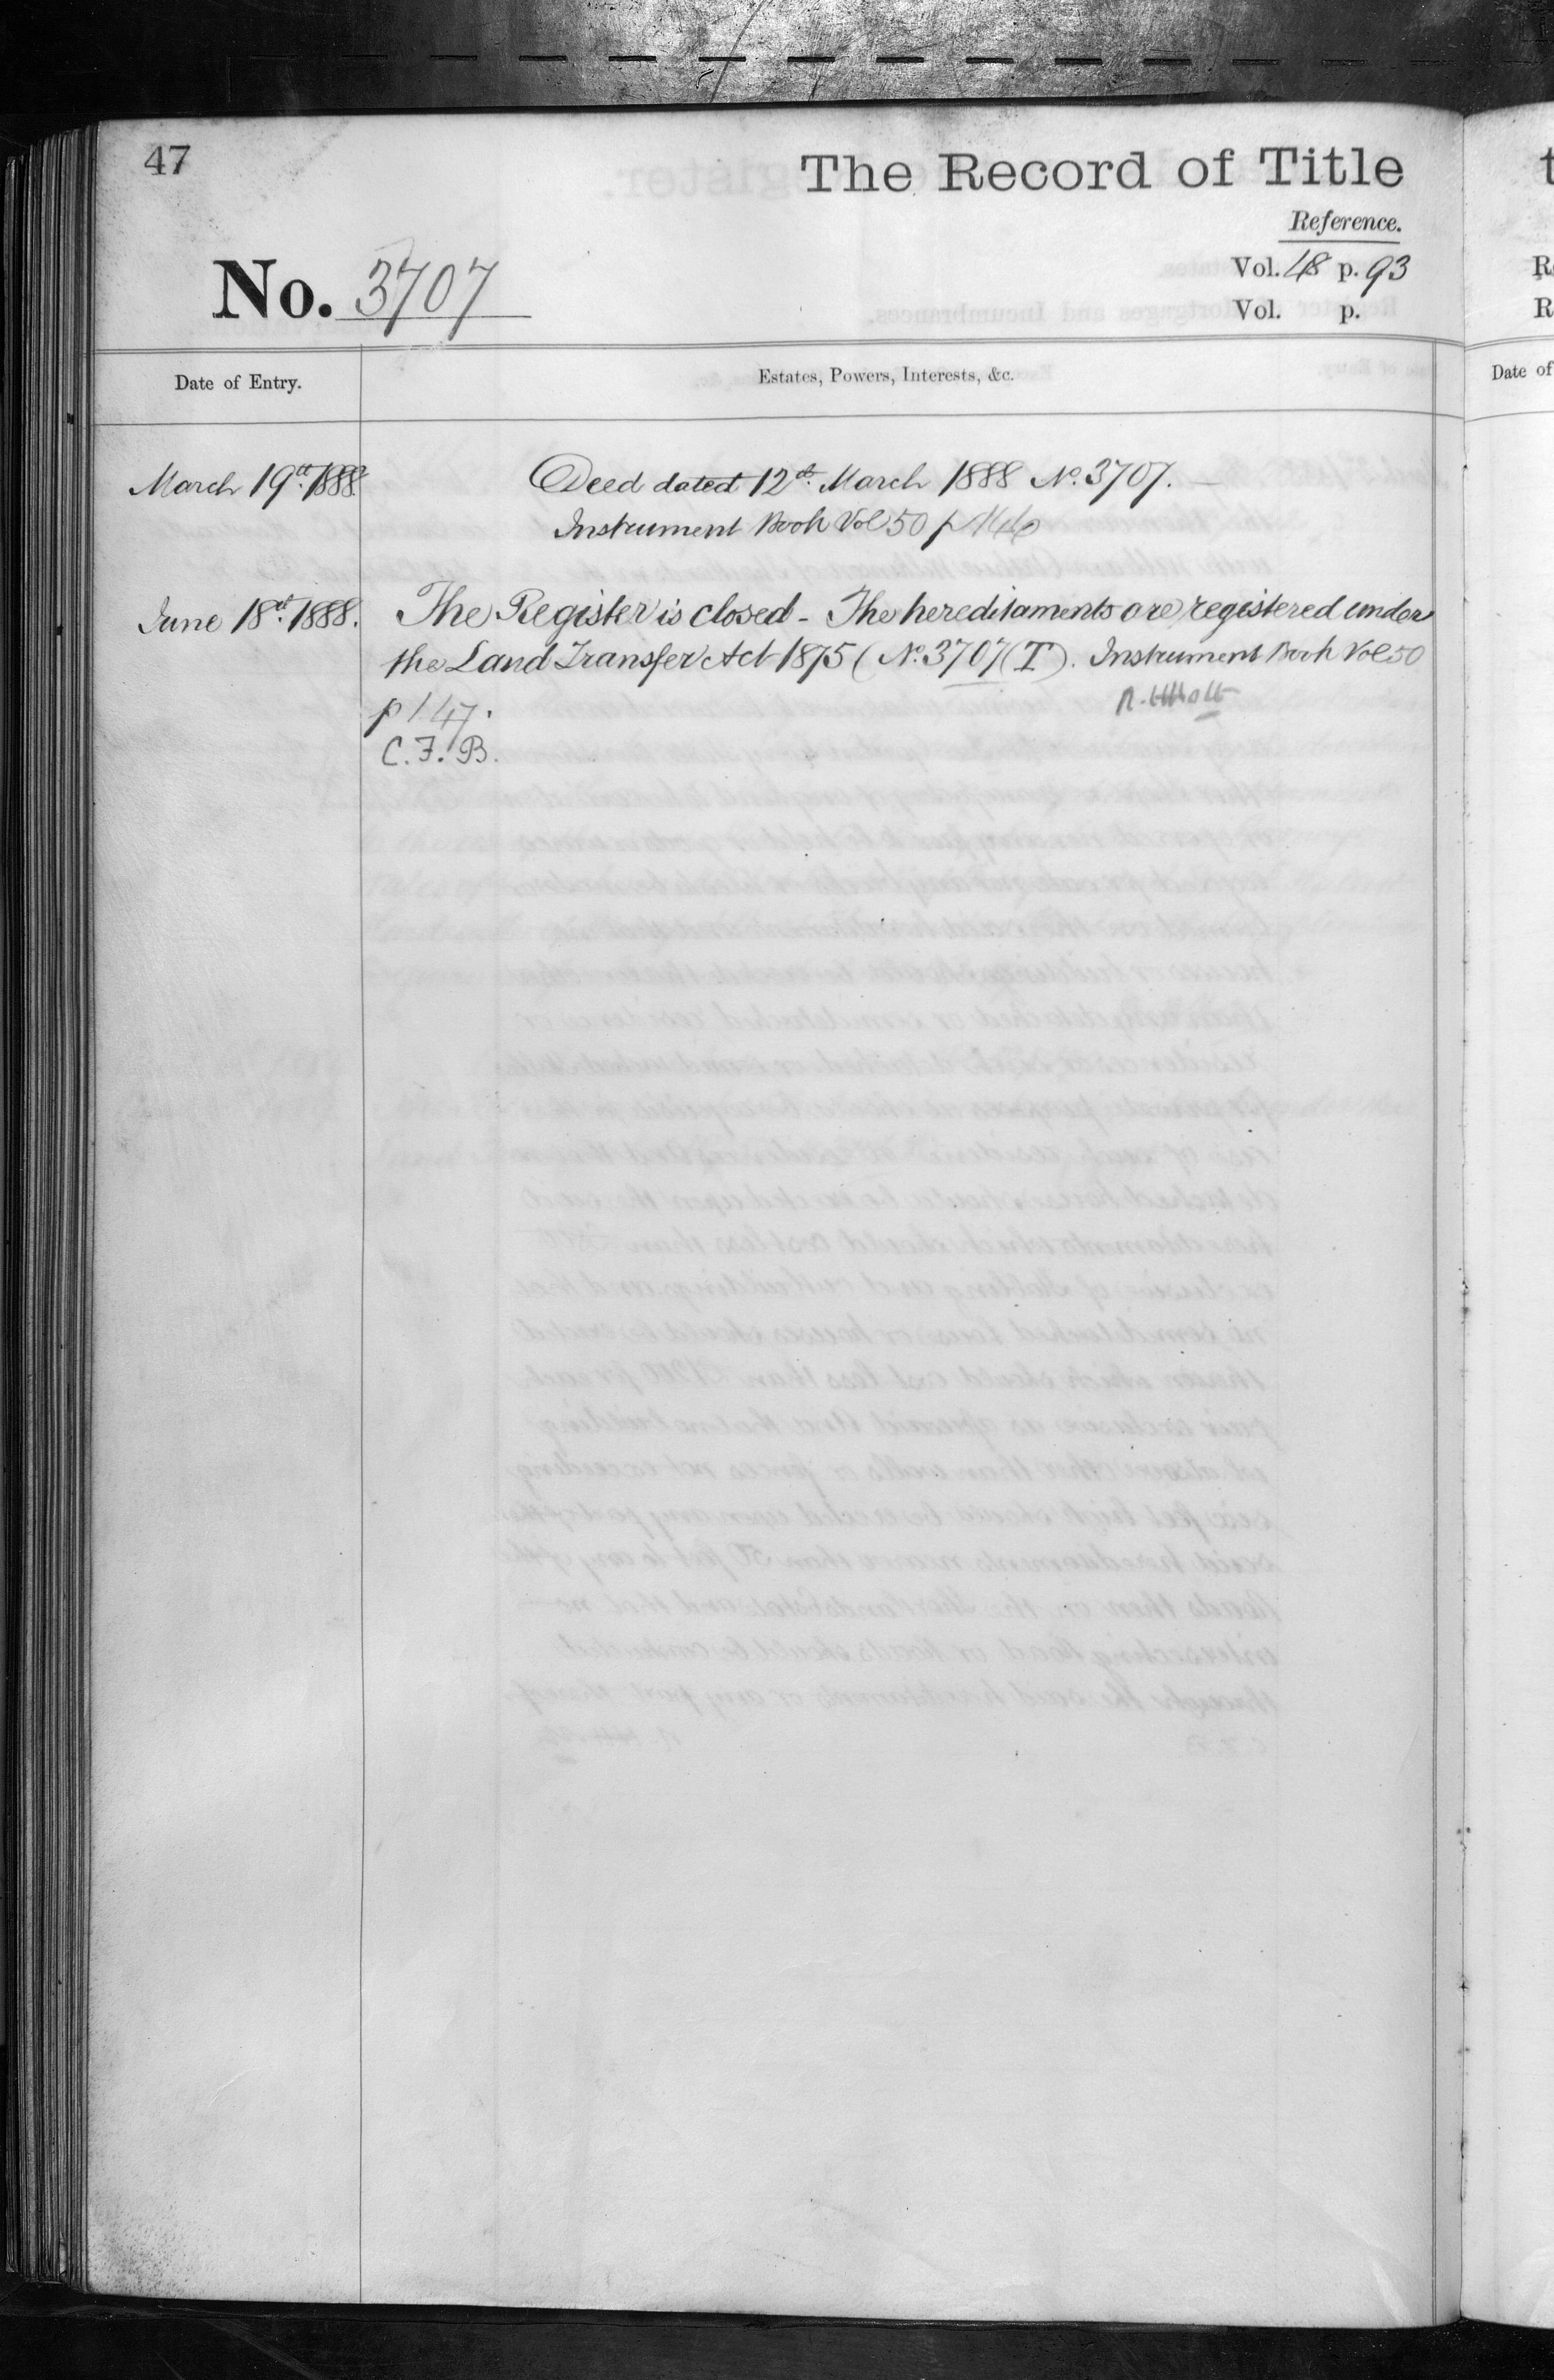 47
The Record of Title
Reference.
No. 3707
Vol. 48 p. 93
Vol. p.
Date of Entry.
Estates, Powers, Interests, &c.
March 19th 1888
Deed dated 12th March 1888 No. 3707.
Instrument Book Vol 50 p 146
June 18th 1888.
The Register is closed - The hereditaments are registered under
the Land Transfer Act 1875 (No. 3707 (T). Instrument Book Vol 50
p 147.
C. F. B.
Date of